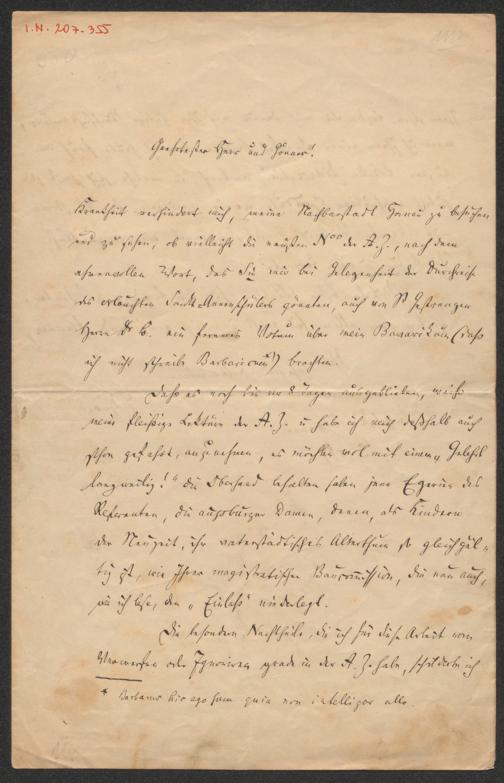 I.N. 207.355
Geehrtester Herr und Gönner!
Krankheit verhindert mich, meine Nachbarstadt Hanau zu besuchen
und zu sehen, ob vielleicht die neusten Nros der A.Z., nach dem
ehrenvollen Wort, das Sie mir bei Gelegenheit der Durchreise
des erlauchten gönnten, auch von Sr Gestrengen
Herrn Dr. ein ferneres Votum über mein Bavaricum (daß
ich nicht schreibe Barbaricum*) brachten.
Daß es noch bis vor 8 Tagen ausgeblieben, weiß
meine fleißige Lektüre der A.Z. u habe ich mich deßhalb auch
schon gefaßt, anzunehmen, es möchten wol mit einem „
langweilig!" die Oberhand behalten haben jene Egerien des
Referenten, die augsburger Damen, denen, als Kindern
der Neuzeit, ihr vaterstädtisches Alterthum so gleichgül-
tig ist, wie Ihrer magistratischen Baucommission, die nun auch,
wie ich lese, den „Einlaß" niederlegt.
Die besondern Nachtheile, die ich für diese Arbeit vom
Verwerfen oder Ignoriren grade in der A.Z. habe, schilderte ich
* Barbarus hic ego sum quia non intelligor ulli.